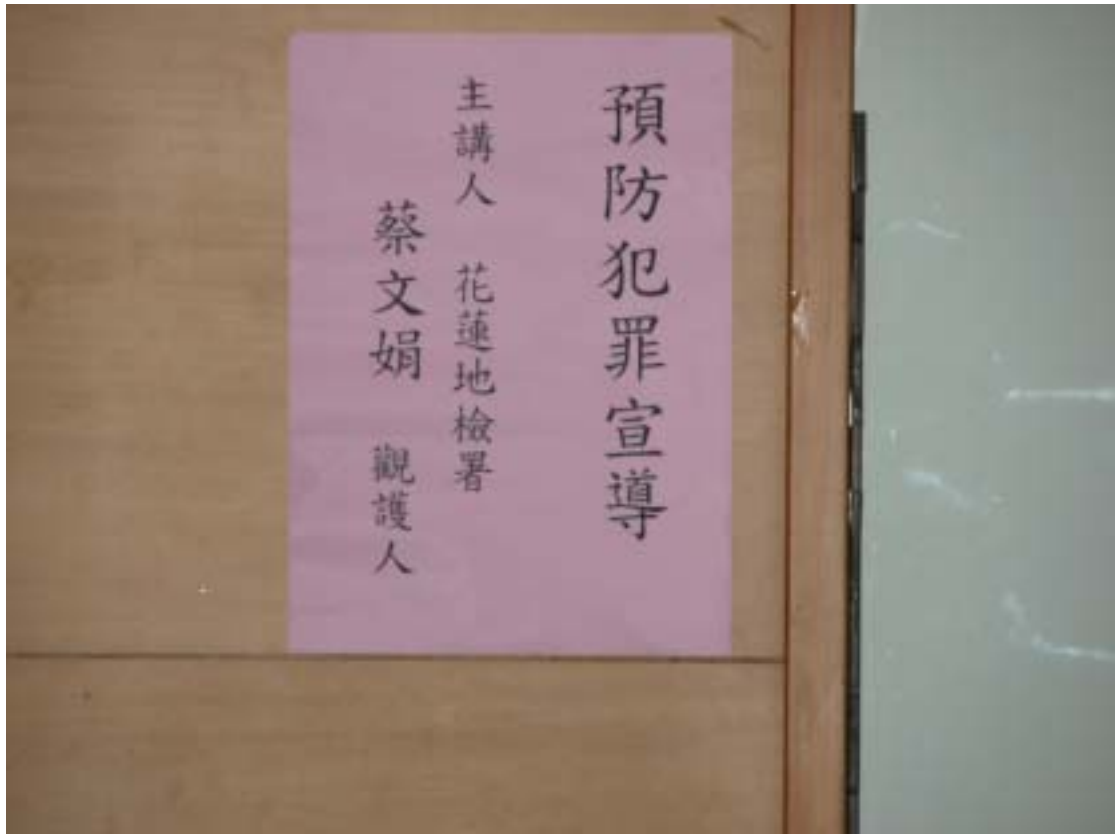 預防犯罪宣導
主講人 花蓮地檢署
蔡文娟 觀護人